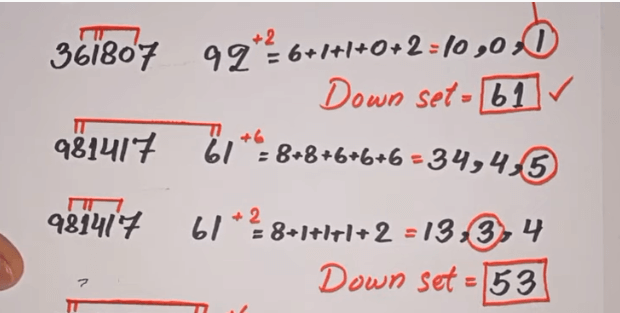 361807 92 +2 = 6+1+1+0+2 = 10, 0, 1
Down set = 61 ✓
981417 61 +6 = 8+8+6+6+6 = 34, 4, 5
981417 61 +2 = 8+1+1+1+2 = 13, 3, 4
Down set = 53